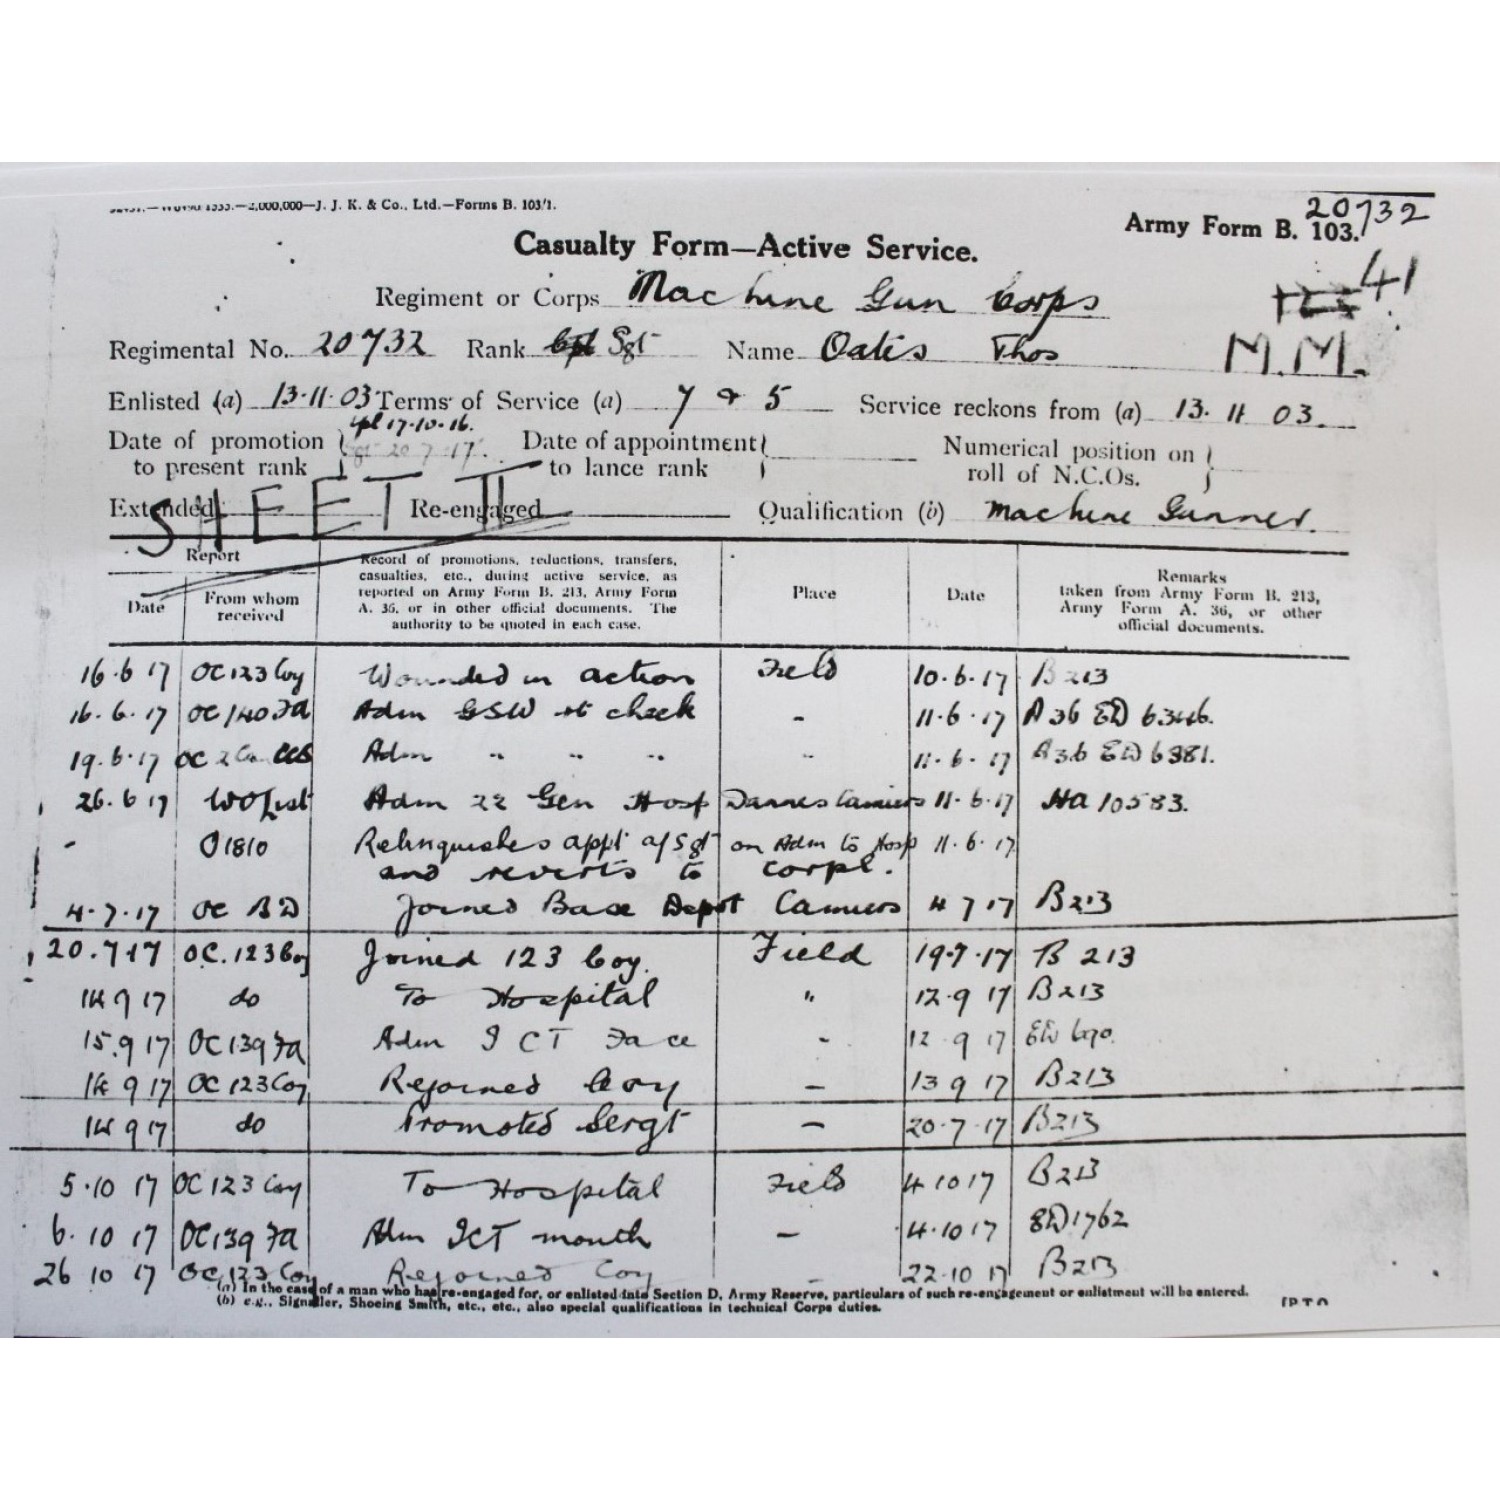 1333.—2,000,000—J. J. K. & Co., Ltd.—Forms B. 103/1.
20732
Army Form B. 103.
Casualty Form—Active Service.
41
Regiment or Corps Machine Gun Corps
Regimental No. 20732 Rank Cpl Sgt Name Oates Thos M.M.
Enlisted (a) 13.11.03 Terms of Service (a) 7 & 5 Service reckons from (a) 13. 11 03.
Cpl 17.10.16.
Date of promotion to present rank Sgt 20 7.17. Date of appointment to lance rank Numerical position on roll of N.C.Os.
SHEET II
Extended Re-engaged Qualification (b) Machine Gunner.
Report
Date From whom received Record of promotions, reductions, transfers, casualties, etc., during active service, as reported on Army Form B. 213, Army Form A. 36, or in other official documents. The authority to be quoted in each case. Place Date Remarks taken from Army Form B. 213, Army Form A. 36, or other official documents.
16.6 17 OC 123 Coy Wounded in action Field 10.6.17 B213
16.6.17 OC 140 Fa Adm GSW rt cheek - 11.6.17 A36 ED 6346.
19.6.17 OC 2 Can CCS Adm " " " " 11.6.17 A36 ED 6381.
26.6 17 WO List Adm 22 Gen Hosp Dannes Camiers 11.6.17 HA 10583.
- O1810 Relinquishes appt a/Sgt on Adm to Hosp 11.6.17
and reverts to Corpl.
4.7.17 OC BD Joined Base Depot Camiers 4 7 17 B213
20.7.17 OC. 123 Coy Joined 123 Coy. Field 19.7.17 B 213
14 9 17 do To Hospital " 12.9 17 B213
15.9 17 OC 139 Fa Adm ICT Face - 12 9 17 ED 670.
14 9 17 OC 123 Coy Rejoined Coy — 13 9 17 B213
14 9 17 do Promoted Sergt — 20.7.17 B213
5.10 17 OC 123 Coy To Hospital Field 4 10 17 B213
6.10 17 OC 139 Fa Adm ICT mouth — 4.10 17 ED 1762
26 10 17 OC 123 Coy Rejoined Coy - 22.10 17 B213
(a) In the case of a man who has re-engaged for, or enlisted into Section D, Army Reserve, particulars of such re-engagement or enlistment will be entered.
(b) e.g., Signaller, Shoeing Smith, etc., etc., also special qualifications in technical Corps duties.
[P.T.O